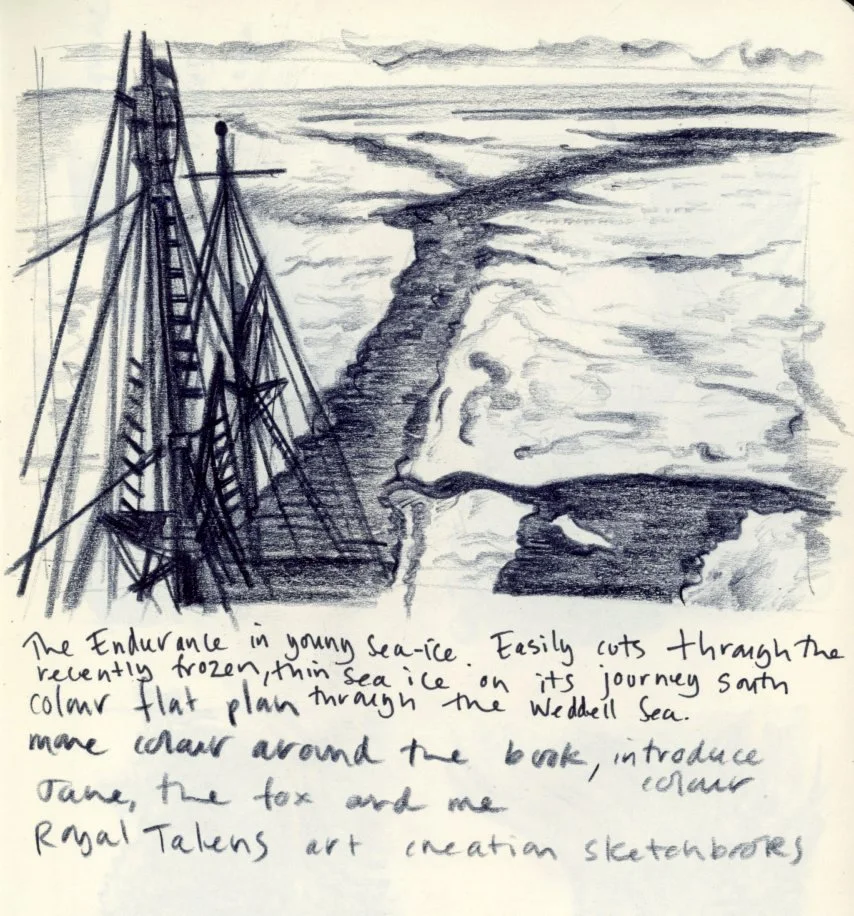 The Endurance in young sea-ice. Easily cuts through the
recently frozen, thin sea ice on its journey south
through the Weddell Sea.
colour flat plan
more colour around the book, introduce
colour
Jane, the fox and me
Royal Talens art creation sketchbooks